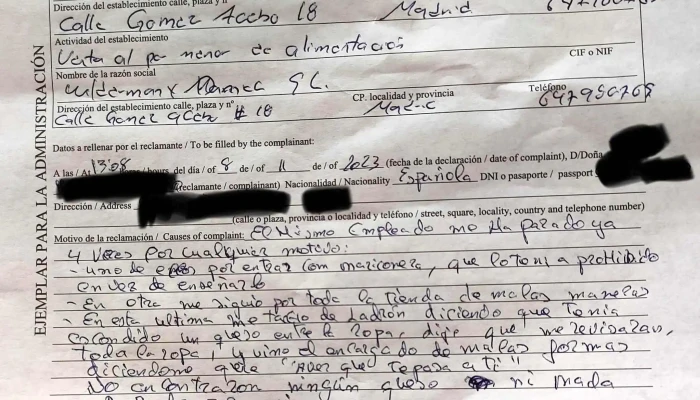 Dirección del establecimiento calle, plaza y nº
Calle Gomez Acebo 18 Madrid
Actividad del establecimiento
Venta al por menor de alimentación
CIF o NIF
Nombre de la razón social
SL.
Dirección del establecimiento calle, plaza y nº CP. localidad y provincia Teléfono
Calle Gomez # 18 Madric
EJEMPLAR PARA LA ADMINISTRACIÓN
Datos a rellenar por el reclamante / To be filled by the complainant:
A las / At 13:08 hours del día / of 8 de / of 11 de / of 2023 (fecha de la declaración / date of complaint), D/Doña
(reclamante / complainant) Nacionalidad / Nationality Española DNI o pasaporte / passport
Dirección / Address
(calle o plaza, provincia o localidad y teléfono / street, square, locality, country and telephone number)
Motivo de la reclamación / Causes of complaint: El Mismo Empleado me ha parado ya
4 veces por cualquier motivo:
- uno de por entrar con mariconera, que lo prohibido
en vez de enseñarlo
- En otra me siguio por toda la tienda de malas maneras
- En esta ultima me de Ladrón diciendo que tenia
escondido un queso entre la ropa, dije que me revisaran,
toda la ropa, y vino el encargado de malas formas
diciendome que "aver que te pasa a ti"
No encontraron ningún queso ni nada